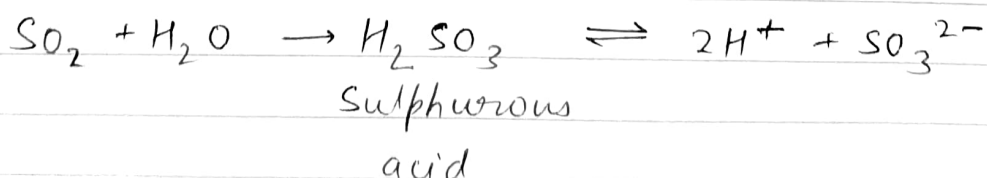 SO₂ + H₂O → H₂SO₃ ⇌ 2H⁺ + SO₃²⁻
Sulphurous
acid